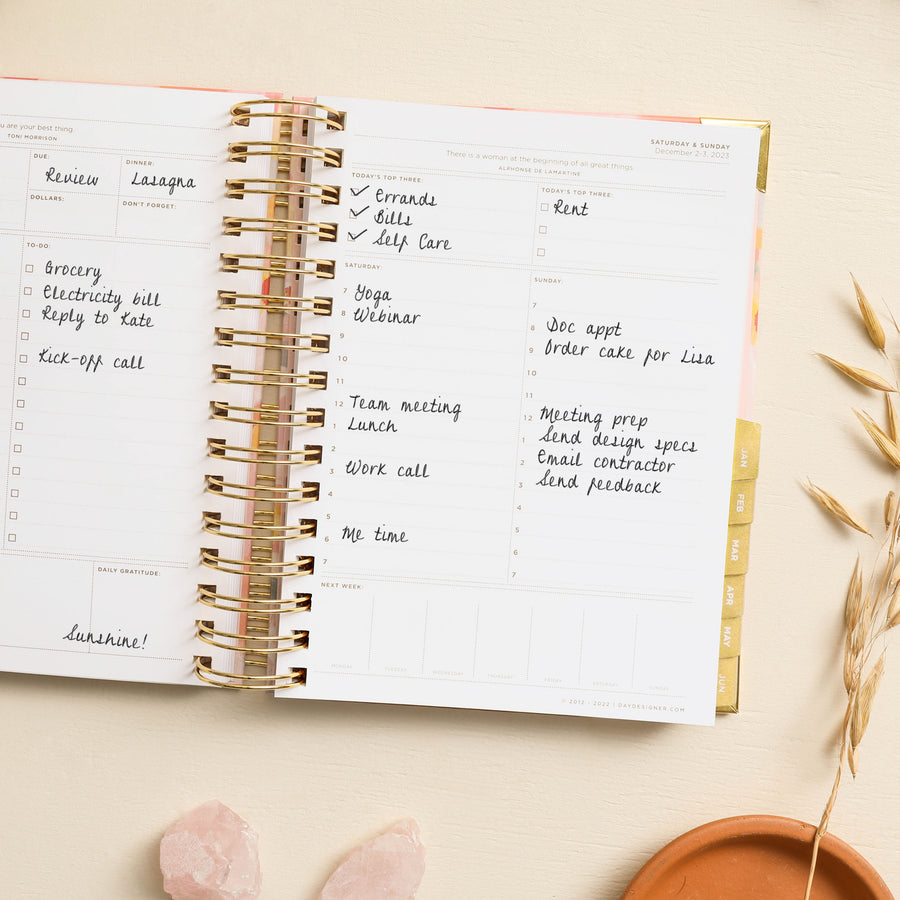 u are your best thing.
TONI MORRISON
DUE:
Review
DINNER:
Lasagna
DOLLARS:
DON'T FORGET:
TO-DO:
Grocery
Electricity bill
Reply to Kate
Kick-off call
DAILY GRATITUDE:
Sunshine!
SATURDAY & SUNDAY
December 2-3, 2023
There is a woman at the beginning of all great things.
ALPHONSE DE LAMARTINE
TODAY'S TOP THREE:
Errands
Bills
Self Care
TODAY'S TOP THREE:
Rent
SATURDAY:
7 Yoga
8 Webinar
9
10
11
12 Team meeting
1 Lunch
2
3 Work call
4
5
6 Me time
7
SUNDAY:
7
8 Doc appt
9 Order cake for Lisa
10
11
12 Meeting prep
1 Send design specs
2 Email contractor
3 Send feedback
4
5
6
7
NEXT WEEK:
MONDAY
TUESDAY
WEDNESDAY
THURSDAY
FRIDAY
SATURDAY
SUNDAY
© 2012 - 2022 | DAYDESIGNER.COM
JAN
FEB
MAR
APR
MAY
JUN